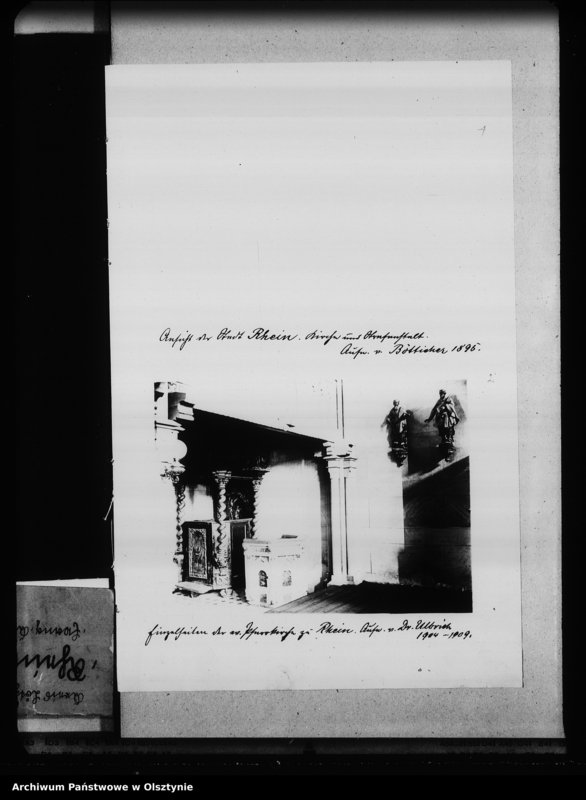 Ansicht der Stadt Rhein. Kirche und Strafanstalt.
Aufn. v. Bötticher 1895.
Einzelheiten der ev. Pfarrkirche zu Rhein. Aufn. v. Dr. Ulbrich
1904-1909.
Archiwum Państwowe w Olsztynie